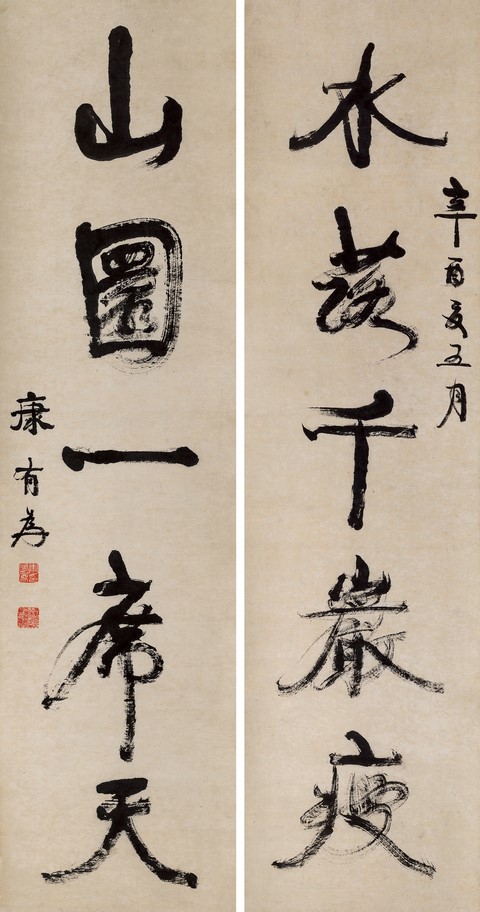 辛酉夏五月
水落千巖瘦
山圜一席天
康有為